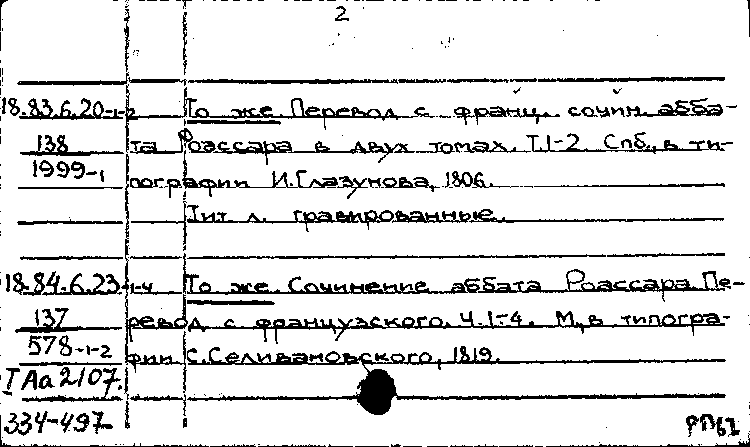 2
18.83.6.20-1-2 То же Перевод с франц. сочин. абба-
138 та Роассара в двух томах. Т.1-2 Спб., в ти-
1999-1 пографии И.Глазунова, 1806.
Тит. л. гравированные.
18.84.6.23-1-4 То же. Сочинение аббата Роассара. Пе-
137 ревод с французского. Ч.1-4. М., в типогра-
578-1-2 фии С.Селивановского, 1819.
I Аа 2107.
334-497